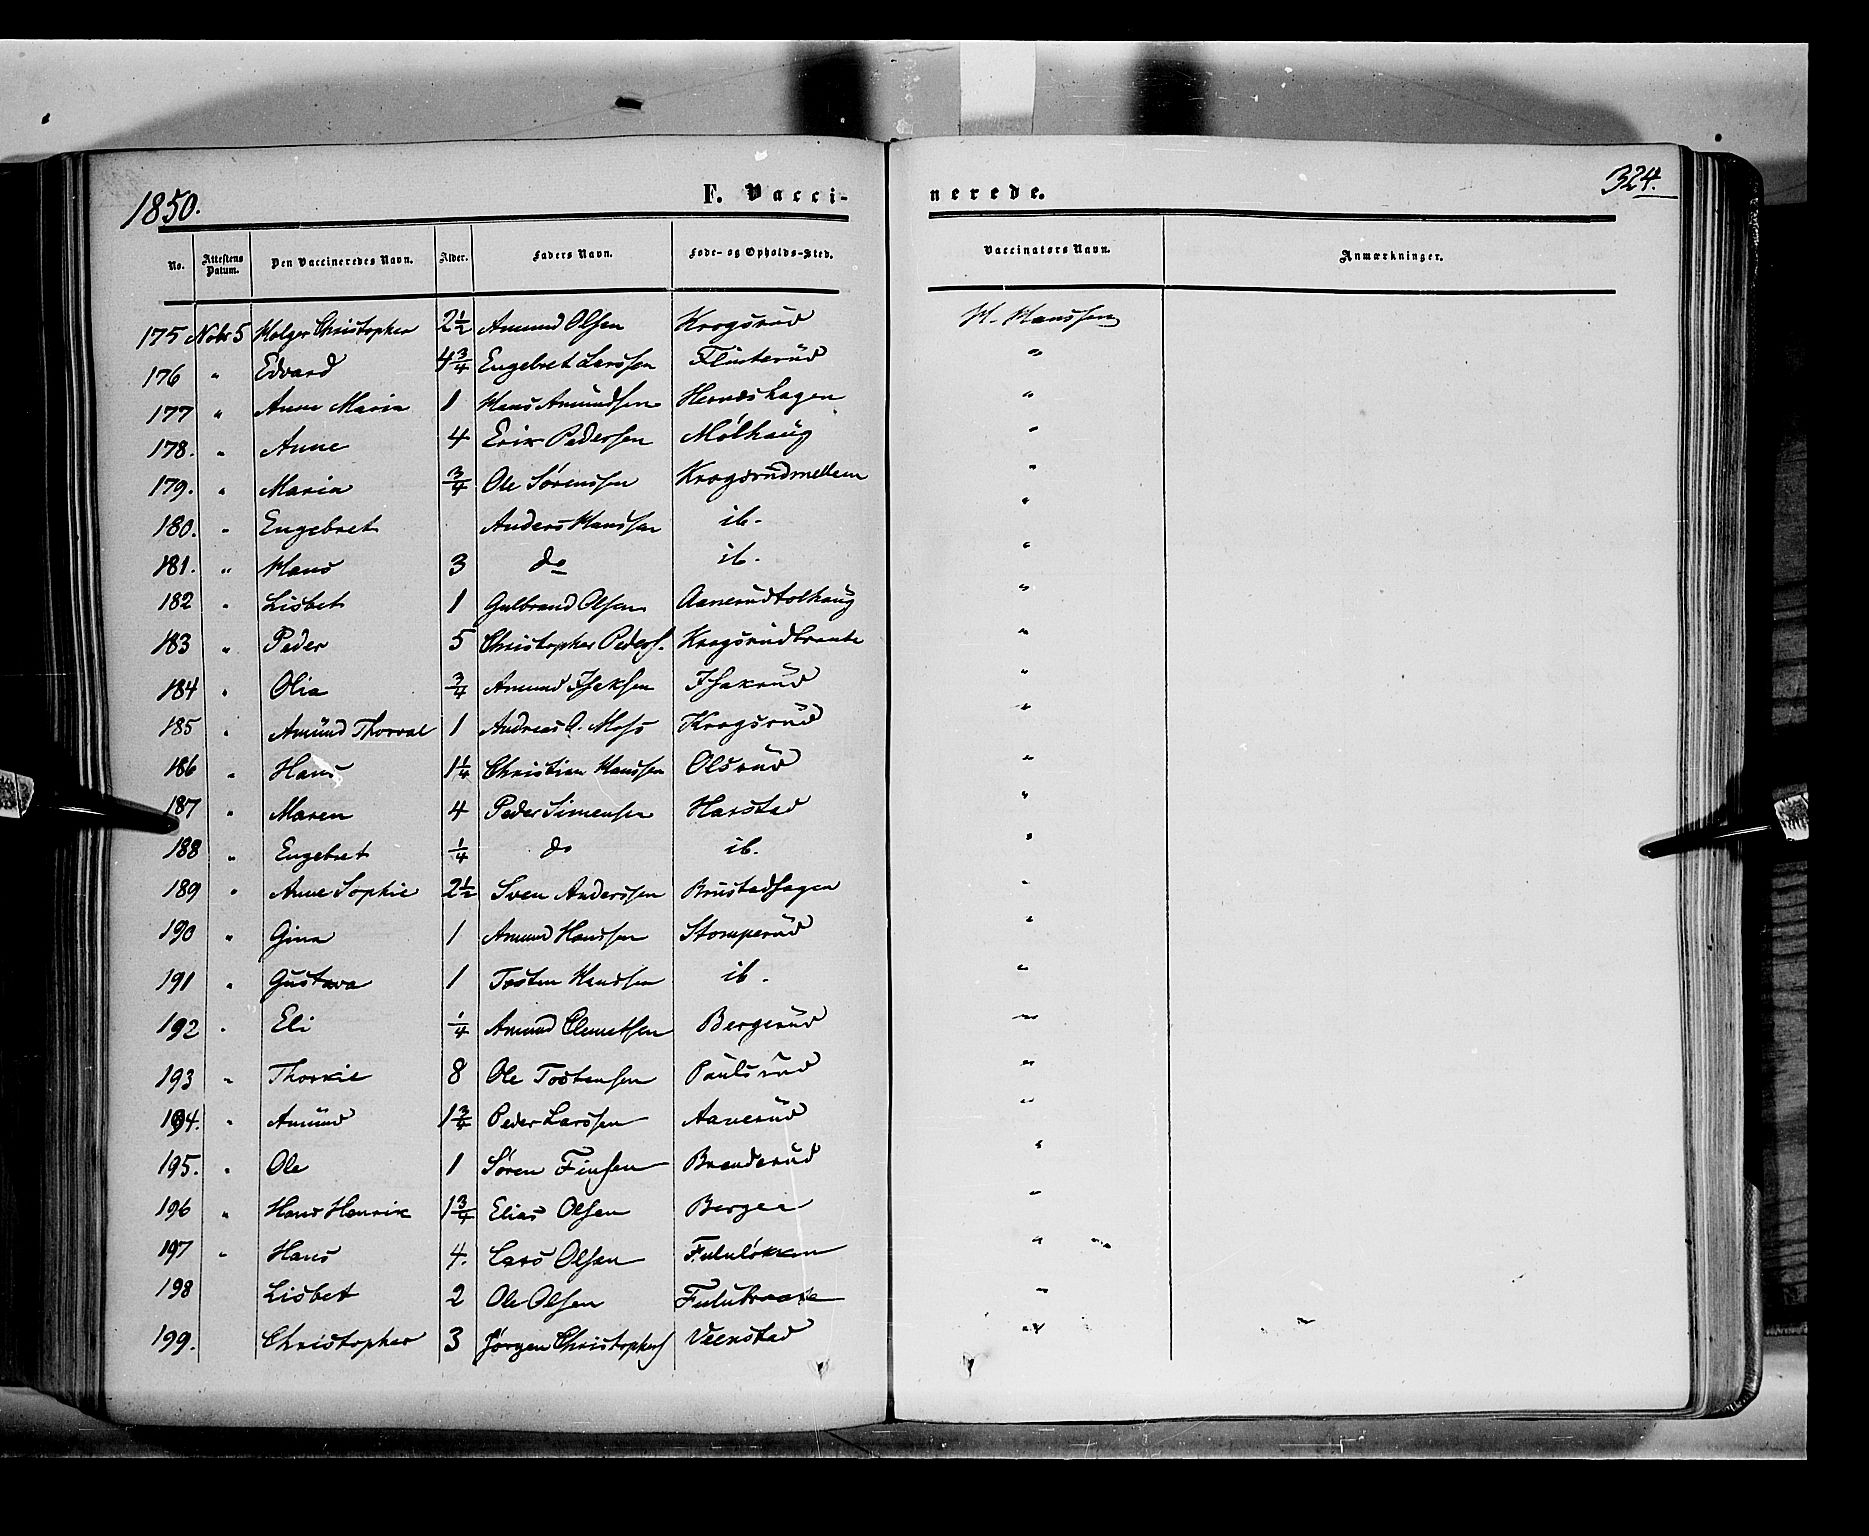 1850.
F. Vacci-
nerede.
324.
No. Attestens Datum. Den Vaccineredes Navn. Alder. Faders Navn. Føde- og Opholds-Sted. Vaccinators Navn. Anmærkninger.
175 Nobr 5 Holger Christopher 2 1/2 Amund Olsen Krogsrüd H. Hanssen
176 " Edvard 4 3/4 Engebret Larssen Flinterüd "
177 " Anne Maria 1 Hans Amündsen Hernæshagen "
178. " Anne 4 Erik Pedersen Mólhaüg "
179. " Maria 3/4 Ole Sörenssen Krogsrüdmellem "
180. " Engebret Anders Hanssen ib. "
181. " Hans 3 do ib. "
182 " Lisbet 1 Gulbrand Olsen Aanerüdtolhaüg "
183 " Peder 5 Christopher Peders. Krogsrüdbraate "
184 " Olia 3/4 Amund Isaksen Isakrüd "
185 " Amünd Thorval 1 Andreas A. Moss Krogsrüd "
186 " Hans 1 1/4 Christian Hanssen Olsrüd "
187 " Maren 4 Peder Simensen Harstad "
188 " Engebret 1/4 do ib. "
189 " Anne Sophie 2 1/2 Sven Anderssen Brüstadhagen "
190 " Gina 1 Amund Hanssen Stomperüd "
191 " Güstava 1 Tosten Knudsen ib. "
192 " Eli 1/4 Amund Clemetsen Bergerüd "
193 " Thorkil 8 Ole Tostensen Paülsrud "
194. " Amünd 1 3/4 Peder Larssen Aanerüd "
195. " Ole 1 Sören Finsen Branderüd "
196 " Hans Henrik 1 3/4 Elias Olsen Berger "
197 " Hans 4. Lars Olsen Fululökken "
198 Lisbet 2 Ole Olsen Fulubraate "
199. Christopher 3 Jörgen Christophers Veenstad "